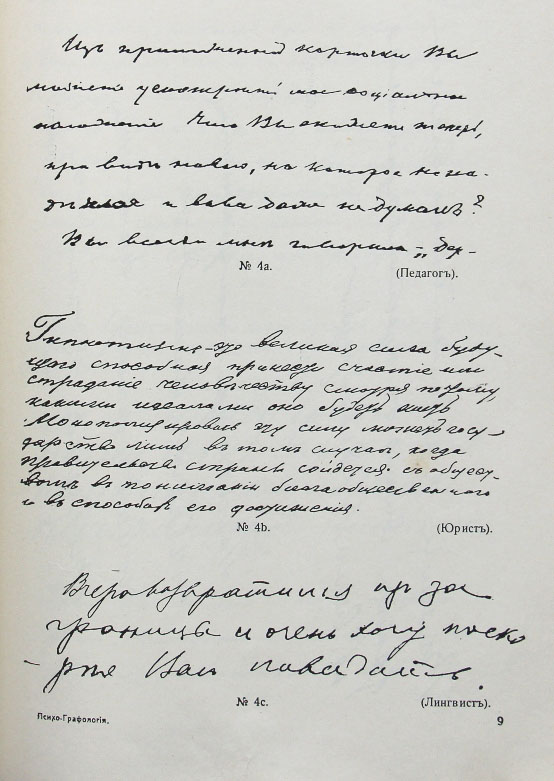 Изъ приложенной карточки Вы
можете усмотреть мое соціальное
положеніе. Чего Вы ожидаете теперь,
при видѣ новаго, на которое не на-
и вовсе даже не думалъ?
Вы всегда мнѣ говорили — „Дер-
№ 4а. (Педагогъ).
Гипнотизмъ — это великая сила буду-
щаго способная принести счастіе или
страданіе человѣчеству смотря потому,
какими идеалами оно будетъ жить
Монополизировать эту силу можетъ госу-
дарство лишь въ томъ случаѣ, когда
правительство страны сойдется съ общес-
вомъ въ пониманіи блага общественного
и въ способахъ его достиженія.
№ 4b. (Юристъ).
Вчера возвратился изъ за
границы и очень хочу поско
рѣе Васъ повидать.
№ 4с. (Лингвистъ).
Психо-Графологія. 9